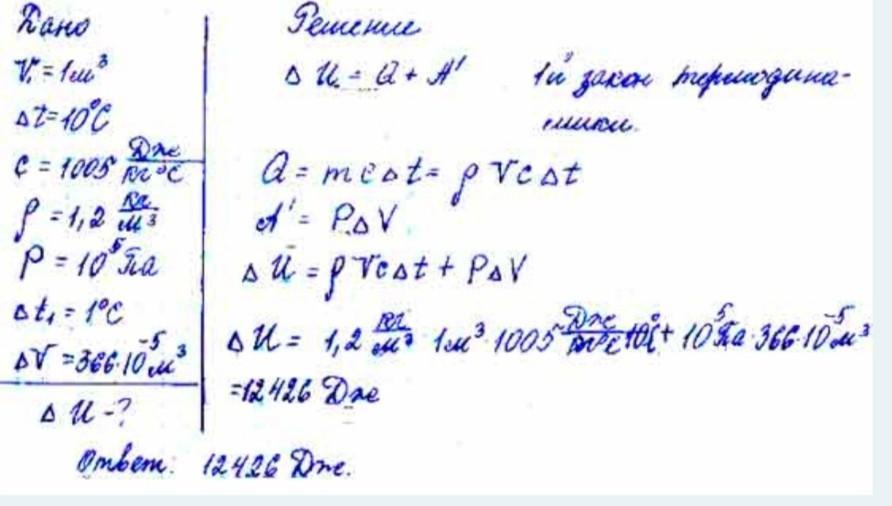 Дано
V₁ = 1м³
Δt = 10°C
c = 1005 Дж/кг°C
ρ = 1,2 кг/м³
P = 10⁵ Па
Δt₁ = 1°C
ΔV = 366·10⁻⁵ м³
ΔU - ?
Решение
ΔU = Q + A' 1й закон термодина-
мики.
Q = mcΔt = ρVcΔt
A' = PΔV
ΔU = ρVcΔt + PΔV
ΔU = 1,2 кг/м³ · 1м³ · 1005 Дж/кг°C · 10°C + 10⁵ Па · 366·10⁻⁵ м³
= 12426 Дж
Ответ: 12426 Дж.